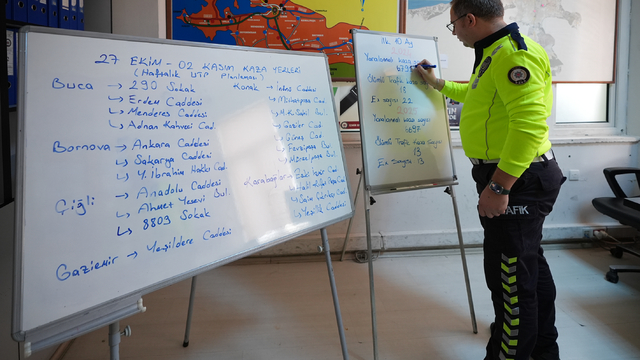 27 EKİM - 02 KASIM KAZA YERLERİ
(Haftalık UTP Planlaması)
Buca → 290 Sokak
↳ Erdem Caddesi
↳ Menderes Caddesi
↳ Adnan Kahveci Cad.
Bornova → Ankara Caddesi
↳ Sakarya Caddesi
↳ Y. İbrahim Hakkı Cad.
Çiğli → Anadolu Caddesi
↳ Ahmet Yesevi Bul.
↳ 8809 Sokak
Gaziemir → Yeşildere Caddesi
Konak → İnönü Caddesi
↳ Mürselpaşa Cad.
↳ M.K. Sahil Bul.
↳ Gaziler Cad.
↳ Fevzipaşa Bul.
↳ Mürselpaşa Bul.
Karabağlar → Eski İzmir Cad.
↳ Yeşillik Caddesi
İlk 10 Ay
Yaralanmalı kaza sayısı
Ölümlü Trafik kaza
18
Ex sayısı 22
Yaralanmalı kaza sayısı
Ölümlü Trafik Kaza Sayısı
13
Ex Sayısı 13
TRAFİK